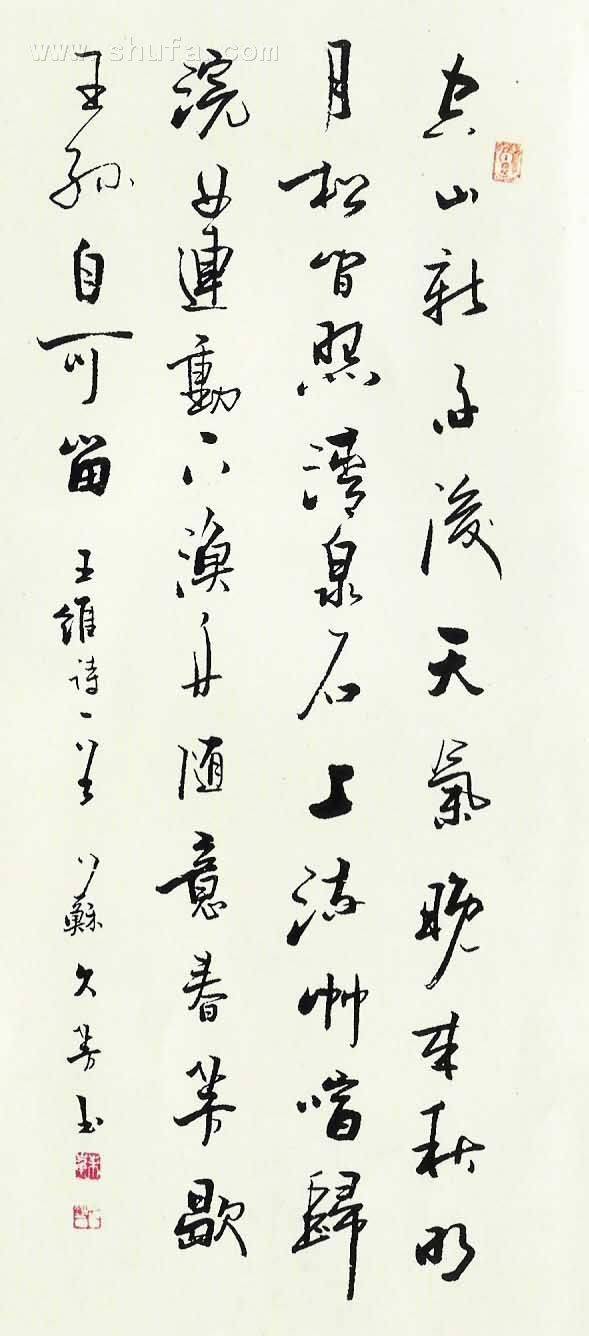 www.shufa.com
空山新雨後天氣晚来秋明
月松间照清泉石上流竹喧歸
浣女連動下漁舟随意春芳歇
王孫自可留 王維诗一首 久芳书